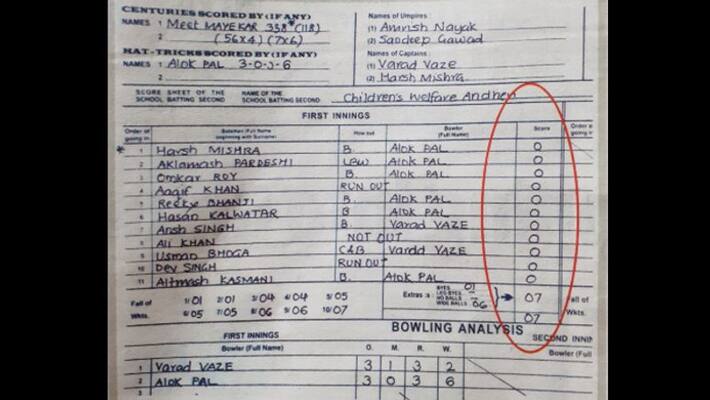 CENTURIES SCORED BY (IF ANY)
NAMES 1 Meet MAYEKAR 338* (118)
2 (56x4) (7x6)
HAT-TRICKS SCORED BY (IF ANY)
NAMES 1 Alok PAL 3-0-3-6
2
Names of Umpires :
(1) Anirish Nayak
(2) Sandeep Gawad
Names of Captains :
(1) Varad Vaze
(2) Harsh Mishra
SCORE SHEET OF THE SCHOOL BATTING SECOND NAME OF THE SCHOOL BATTING SECOND Children's Welfare Andheri
FIRST INNINGS
Order of going in Batsman (Full Name beginning with Surname) How out Bowler (Full Name) Score
* 1 Harsh MISHRA B. Alok PAL 0
2 Aklamash PARDESHI LBW Alok PAL 0
3 Omkar ROY B. Alok PAL 0
4 Aaqif KHAN RUN OUT 0
5 Reckye BHANJI B. Alok PAL 0
6 Hasan KALWATAR B Alok PAL 0
7 Ansh SINGH B. Varad VAZE 0
8 Ali KHAN NOT OUT 0
9 Usman BHOGA C&B Varad VAZE 0
10 Dev SINGH RUN OUT 0
11 Altmash KASMANI B. Alok PAL 0
Fall of 1/01 2/01 3/04 4/04 5/05
Wkts. 6/05 7/05 8/06 9/06 10/07
Extras : BYES 01
LEG BYES —
NO BALLS —
WIDE BALLS 06
07
07
Fall of
Wkts.
BOWLING ANALYSIS
FIRST INNINGS
SECOND INNIN
Bowler (Full Name) O. M. R. W. Bowler (Full
1 Varad VAZE 3 1 3 2
2 Alok PAL 3 0 3 6
3